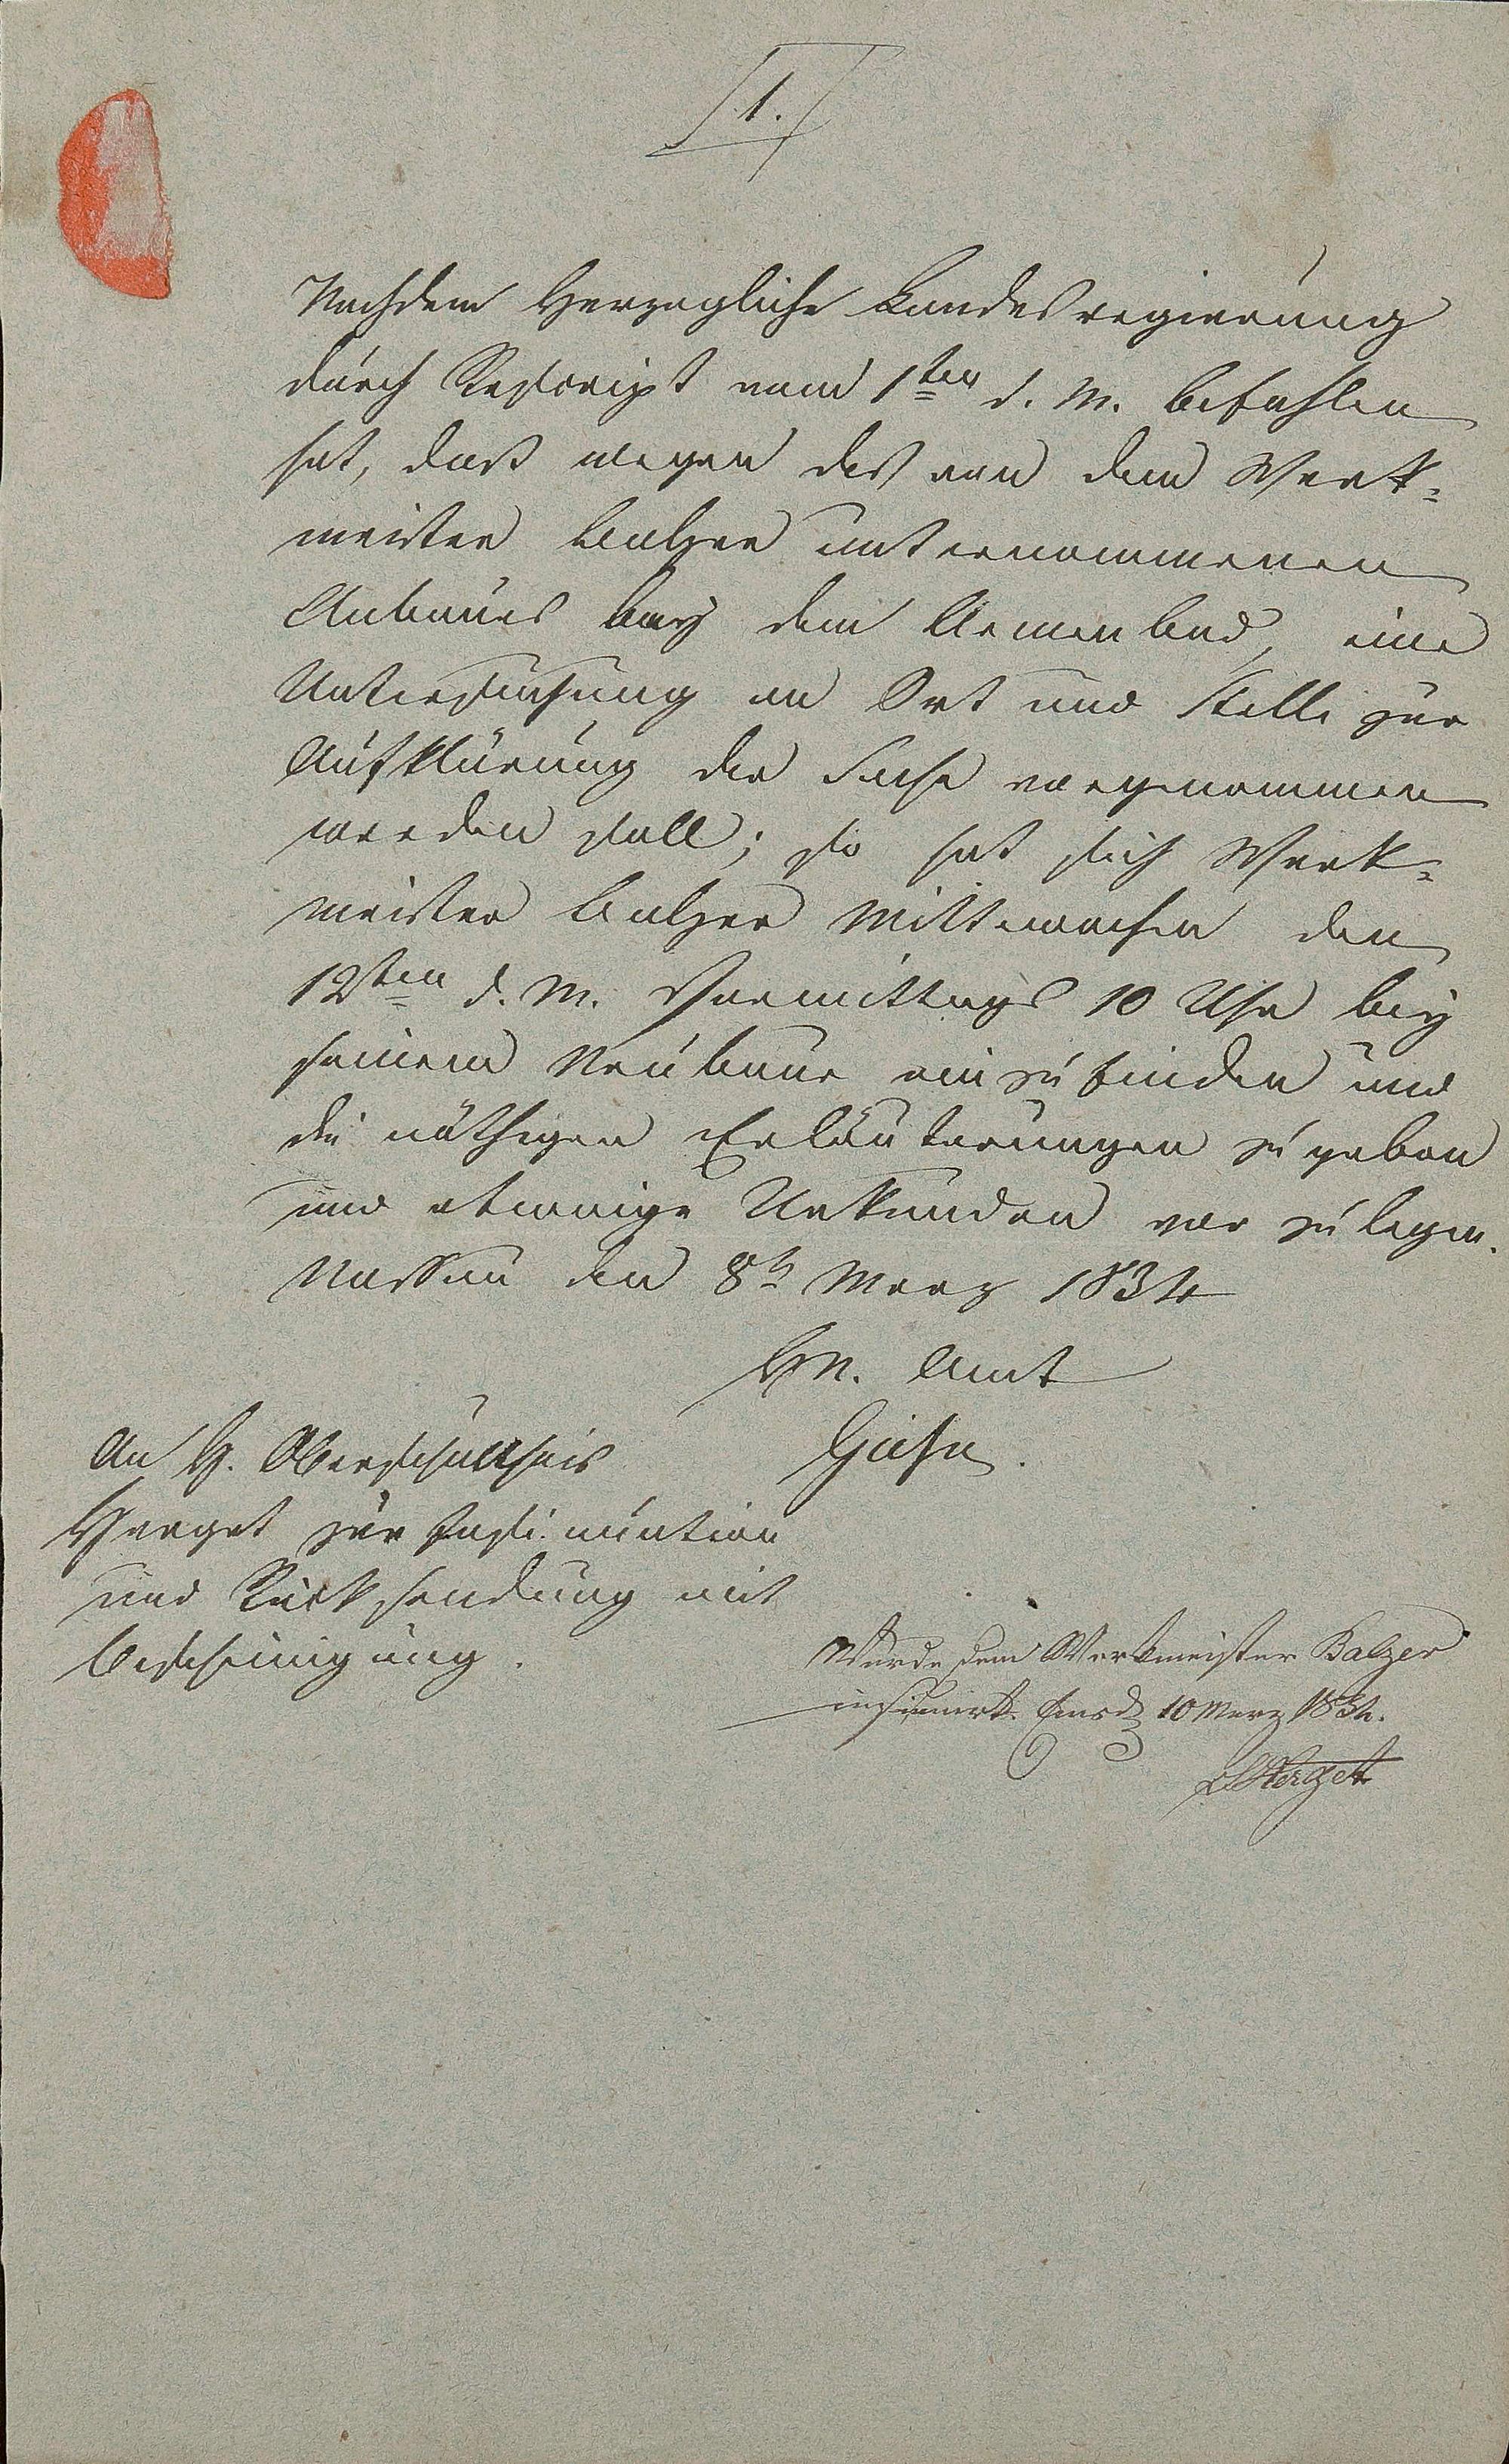 1.
Nachdem Herzogliche Landesregierung
durch Rescript vom 1ten d. M. befohlen
hat, daß wegen des von dem Werk=
meister Balzer unternommenen
Anbaues bey dem Armenbad, eine
Untersuchung an Ort und Stelle zur
Aufklärung der Sache vorgenommen
werden soll; so hat sich Werk=
meister Balzer Mittwochen den
12ten d. M. Vormittags 10 Uhr bey
seinem Neubaue einzufinden und
die nöthigen Erläuterungen zu geben
und etwaige Urkunden vor zu legen.
Nassau den 8t Merz 1834
H. N. Amt
An H. Oberschultheis
Herget zur Insinuation
und Rücksendung mit
Bescheinigung.
Wurde dem Werkmeister Balzer
insinuirt. Ems d 10 Merz 1834.
Herget